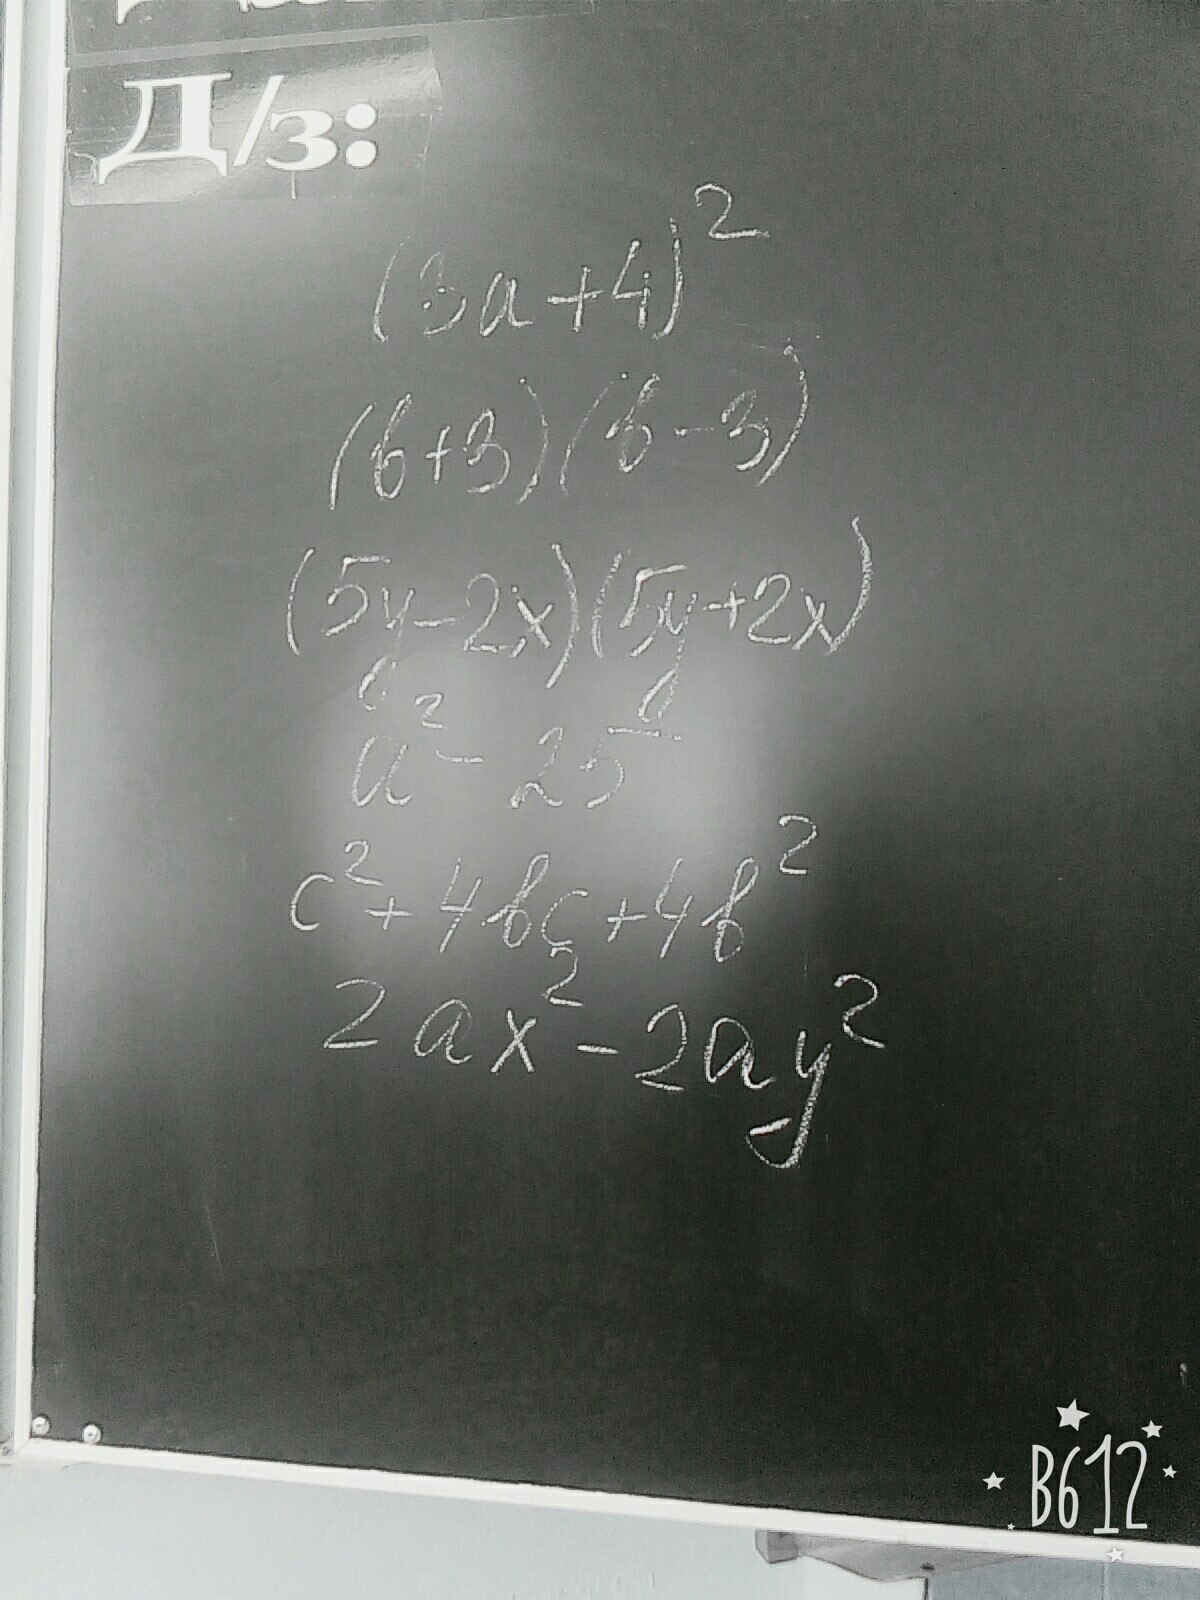 Д/з:
(3a+4)²
(b+3)(b-3)
(5y-2x)(5y+2x)
a²-25
c²+4bc+4b²
2ax²-2ay²
B612